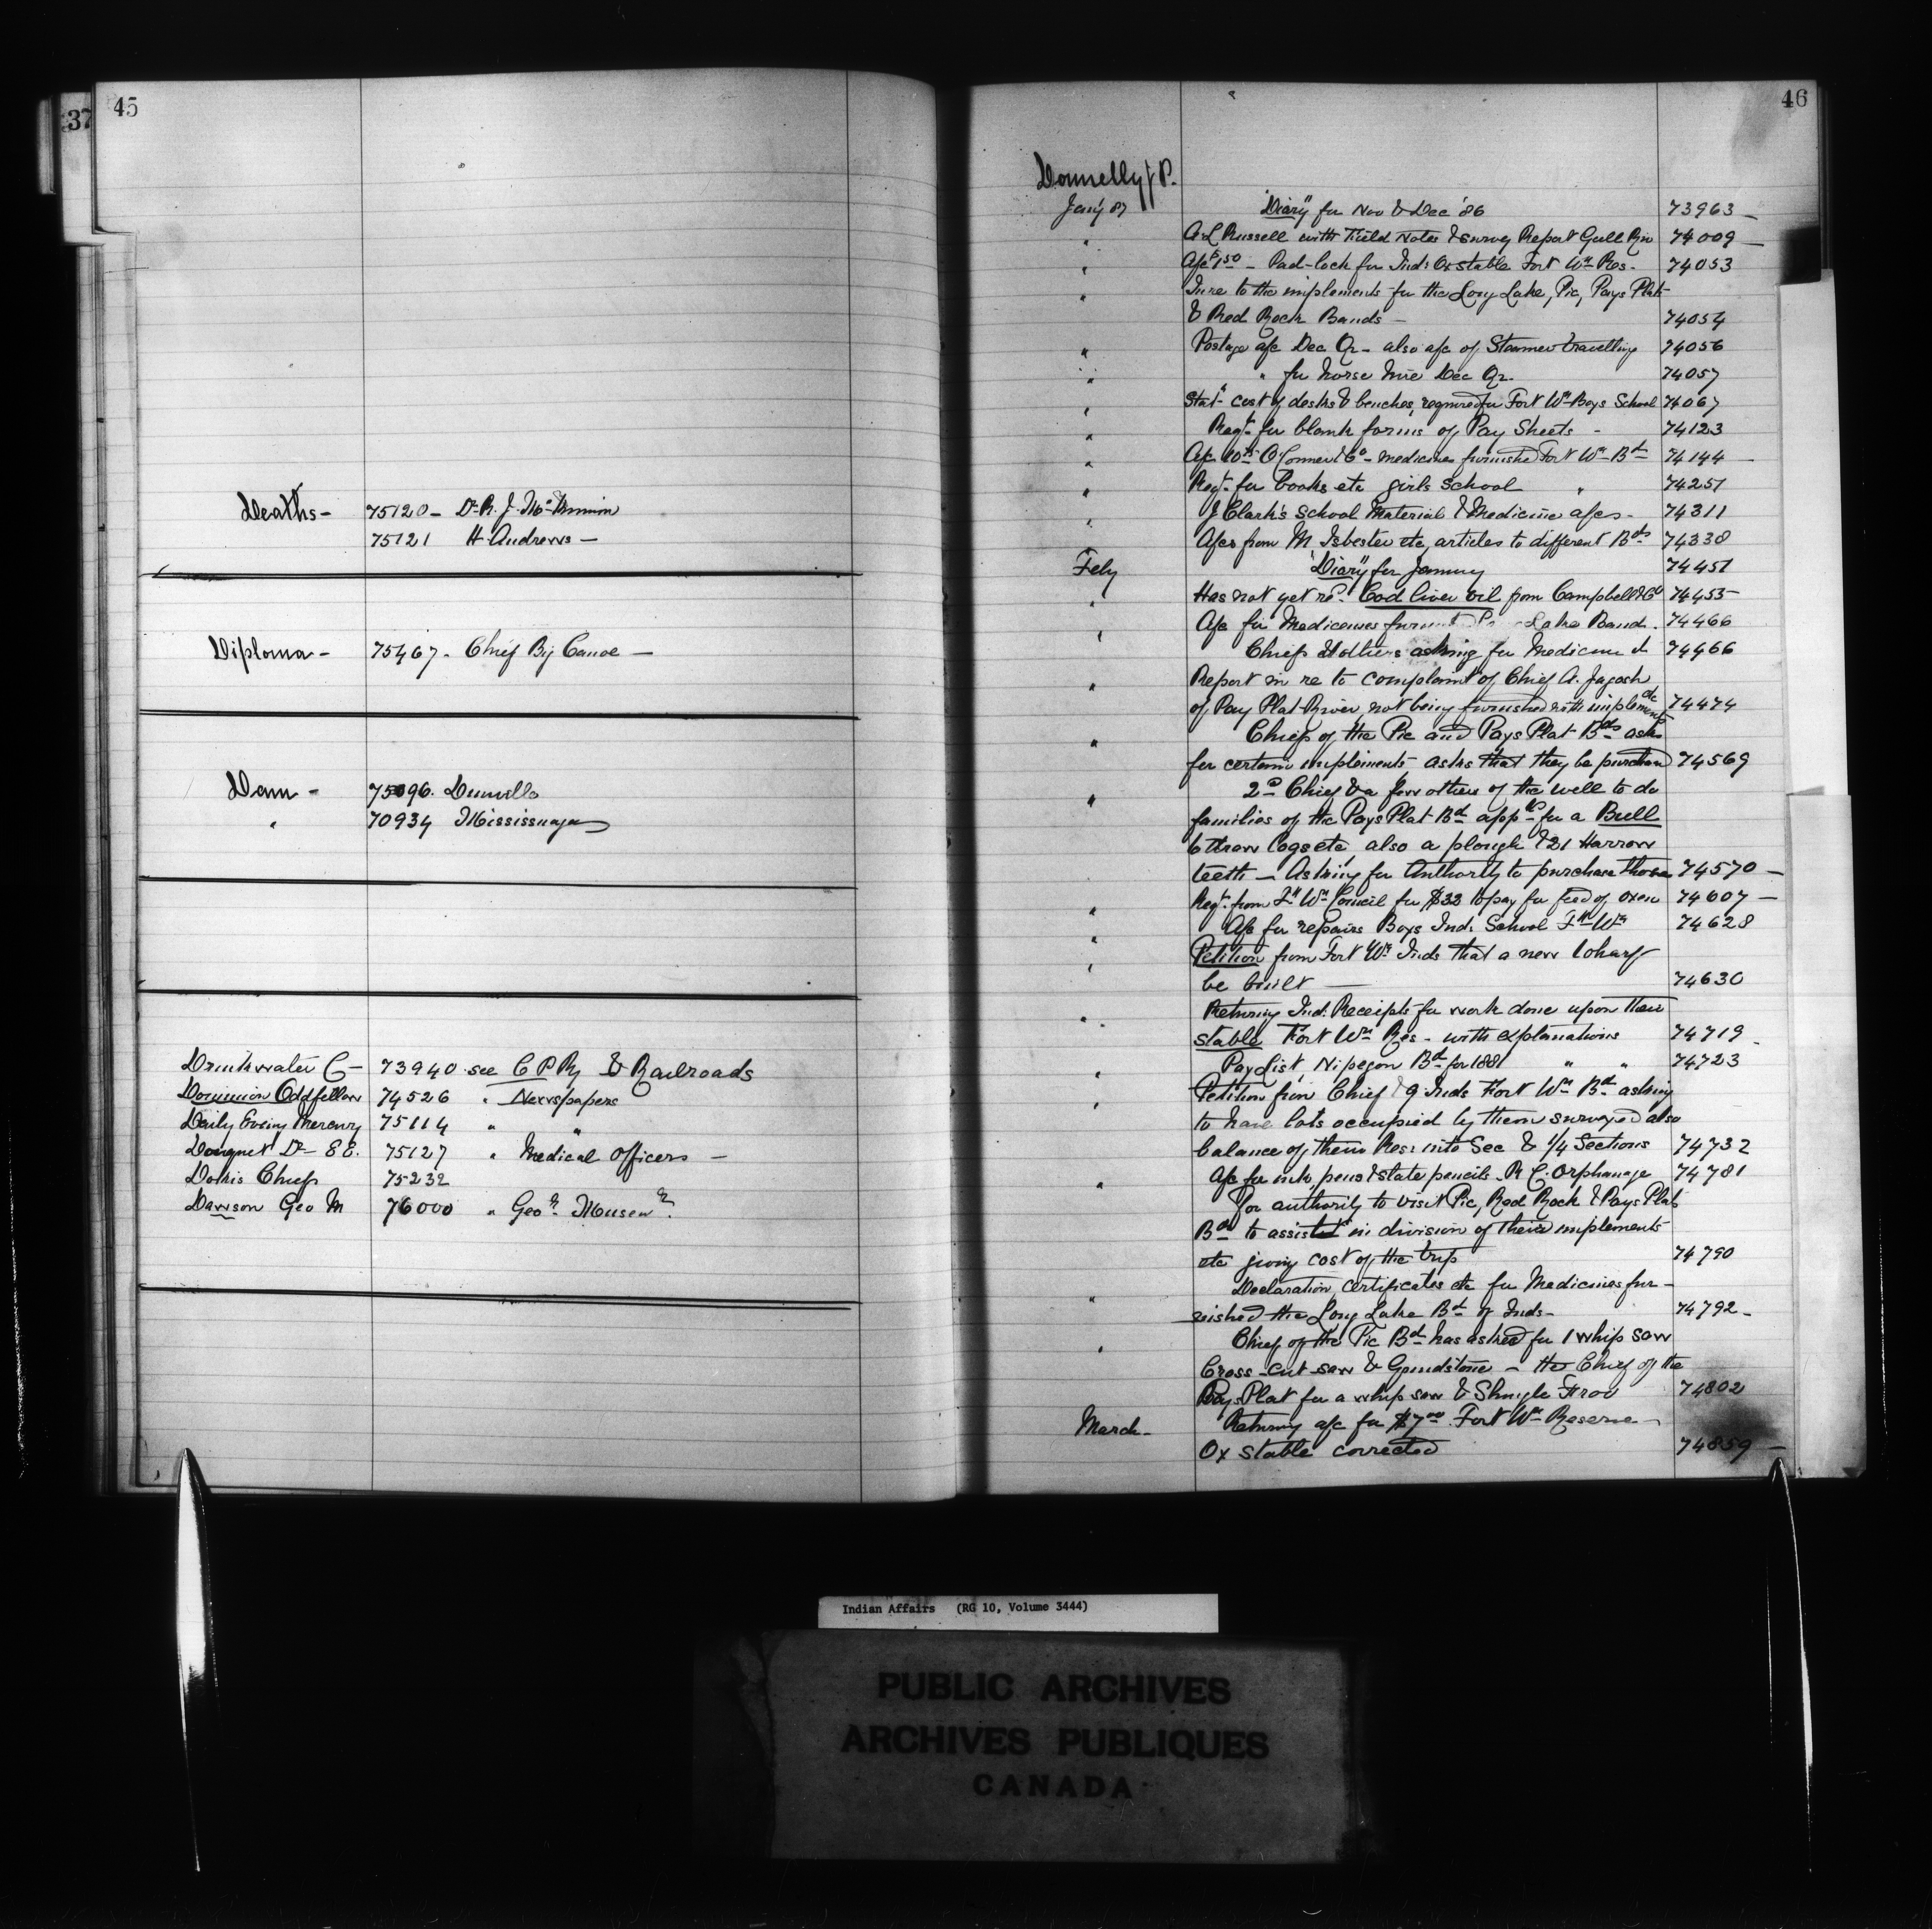 37
45
Deaths - 75120 - Dr. R. J. McKinnon
75121 H. Andrews -
Diploma - 75467 - Chief Big Canoe -
Dam - 75096. Dunville
" 70934 Mississauga
Drinkwater C - 73940 see C P Ry & Railroads
Dominion Oddfellow 74526 " Newspapers
Daily Evening Mercury 75114 " "
Dr E E. 75127 " Medical Officers -
Dokis Chief 75232
Dawson Geo M 76000 " Geol. Museum
46
Donnelly J P.
Jany 87 "Diary" for Nov & Dec '86 73963 -
" A. L Russell with Field Notes & survey Report Gull Riv 74009 -
" A/c $1.50 - Pad-lock for Inds Ox stable Fort Wm Res - 74053
" In re to the implements for the Long Lake, Pic, Pays Plat
& Red Rock Bands - 74054
" Postage a/c Dec Qr - also a/c of Steamer travelling 74056
" " for horse hire Dec Qr. 74057
" Stat- cost of desks & benches, required for Fort Wm Boys School 74067
" Reqt. for blank forms of Pay Sheets - 74123
" A/c O'Connor & Co - medicines furnished Fort Wm Bd 74144 -
" Reqt. for books etc girls School " 74251
" J Clark's School Material & Medicine a/cs - 74311
" A/cs from M Isbester etc, articles to different Bds 74338
Feby "Diary" for January 74451
" Has not yet recd. Cod liver oil from Campbell & Co 74455
" A/c for Medicines Lake Band. 74466
" Chief & others asking for Medicine 74466
" Report in re to complaint of Chief A.
of Pay Plat River, not being furnished with implements etc 74474
" Chiefs of the Pic and Pays Plat Bds ask
for certain implements - asks that they be purchased 74569
" 2d Chief & a few others of the well to do
families of the Pays Plat Bd for a Bull
to draw logs etc, also a plough & 21 Harrow
teeth - Asking for Authority to purchase those 74570 -
" Reqt. from Ft Wm Council for $32 to pay for feed of oxen 74607 -
" A/c for repairs Boys Ind. School Ft Wm 74628
" Petition from Fort Wm Inds that a new wharf
be built - 74630
" Returning Ind. Receipts for work done upon their
stable Fort Wm Res - with explanations 74719 -
" Pay List, Nipegon Bd for 1881 " " 74723
" Petition from Chief & 9 Inds Fort Wm Bd asking
to have lots occupied by them surveyed also
balance of their Res: into Sec & 1/4 Sections 74732
" A/c for ink, pens & slate pencils R C. Orphanage 74781
For authority to visit Pic, Red Rock & Pays Plat
Bds to assist in division of their implements
etc giving cost of the trip 74790
" Declaration, certificates etc for Medicines fur-
nished the Long Lake Bd of Inds - 74792 -
" Chief of the Pic Bd has asked for 1 whip saw
Cross-cut saw & Grindstone - the Chief of the
Pays Plat for a whip saw & Shingle Frow 74802
March - Returning a/c for $7.00 Fort Wm Reserve -
Ox stable corrected 74859 -
Indian Affairs (RG 10, Volume 3444)
PUBLIC ARCHIVES
ARCHIVES PUBLIQUES
CANADA